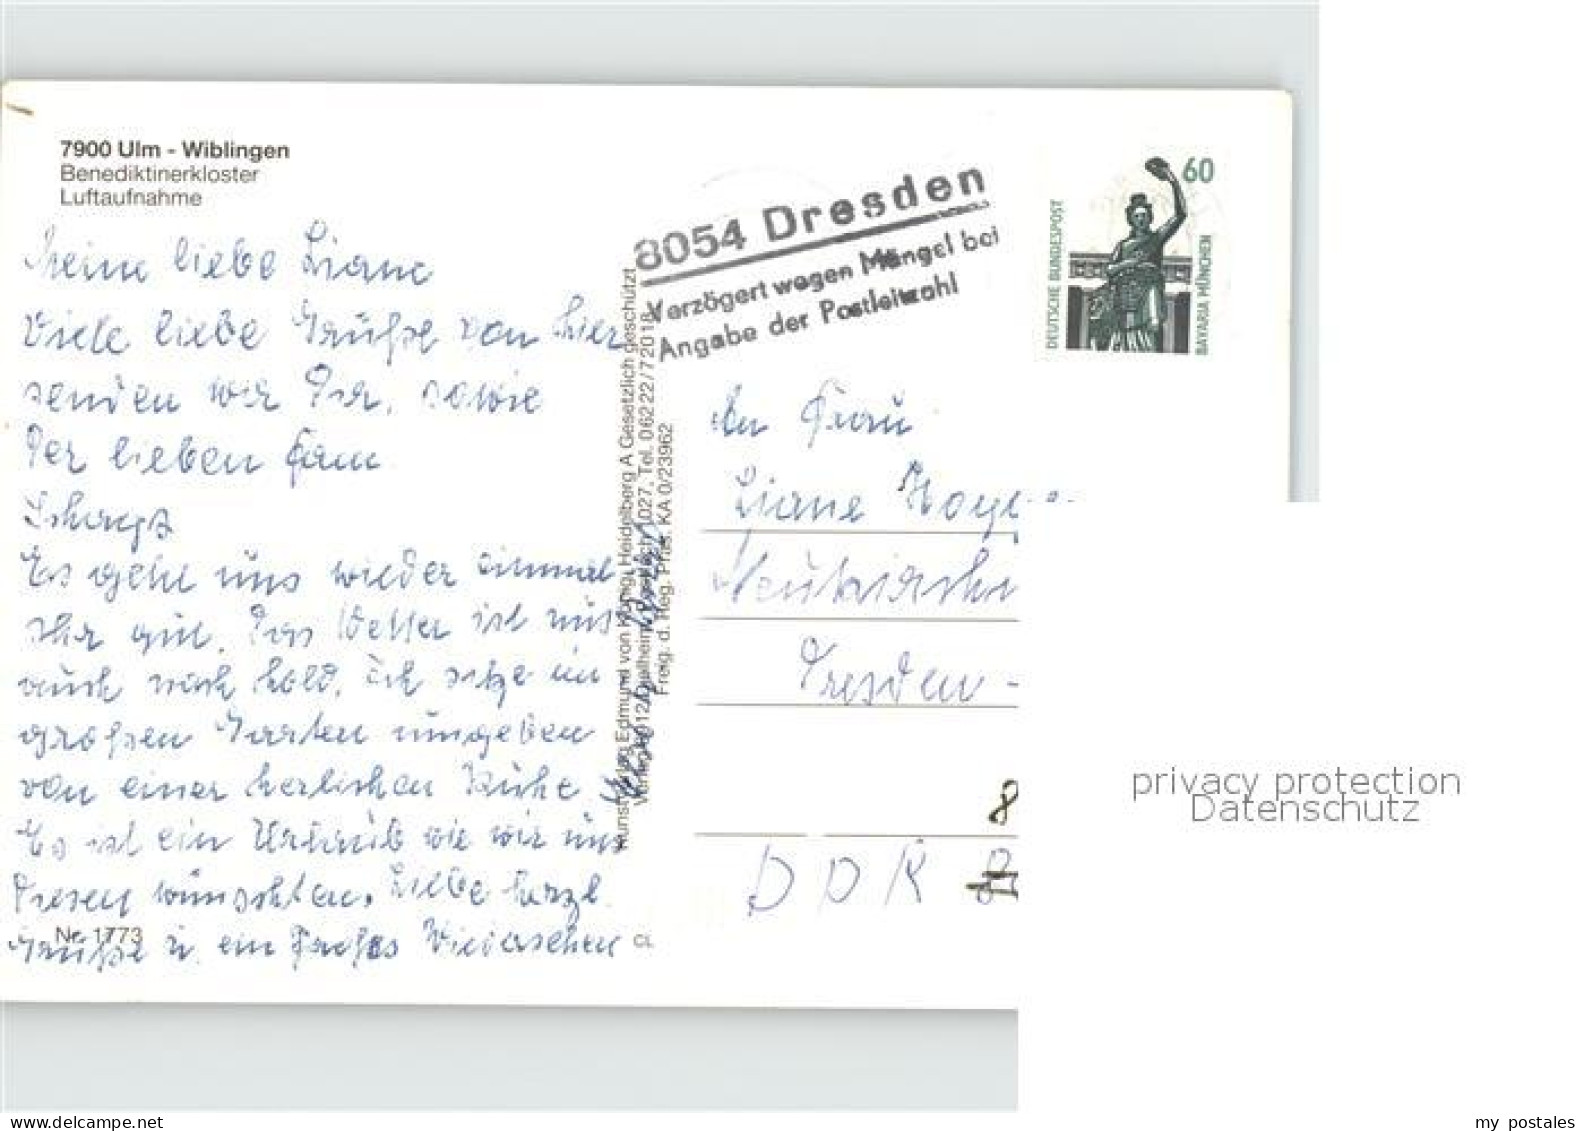 7900 Ulm - Wiblingen
Benediktinerkloster
Luftaufnahme
Meine liebe Liane
Viele liebe Grüße von hier
senden wir Dir, sowie
Der lieben Fam.
Es geht uns wieder einmal
sehr gut. Das Wetter ist uns
auch noch hold. Ich sitze im
großen Garten umgeben
von einer herlichen Ruhe
Es ist ein Urlaub wie wir uns
Diesen wünschten. Liebe herzl.
Grüße u. ein Frohes Wiedersehen
Nr. 1773
Kunstverlag Edmund von König, Heidelberg A Gesetzlich geschützt
Postfach 1027, Tel. 06222/72018
Freig. d. Reg. Präs. KA 0/23962
CL
8054 Dresden
Verzögert wegen Mängel bei
Angabe der Postleitzahl
60
DEUTSCHE BUNDESPOST
BAVARIA MÜNCHEN
An Frau
Liane
Dresden -
8
DDR
privacy protection
Datenschutz
my postales